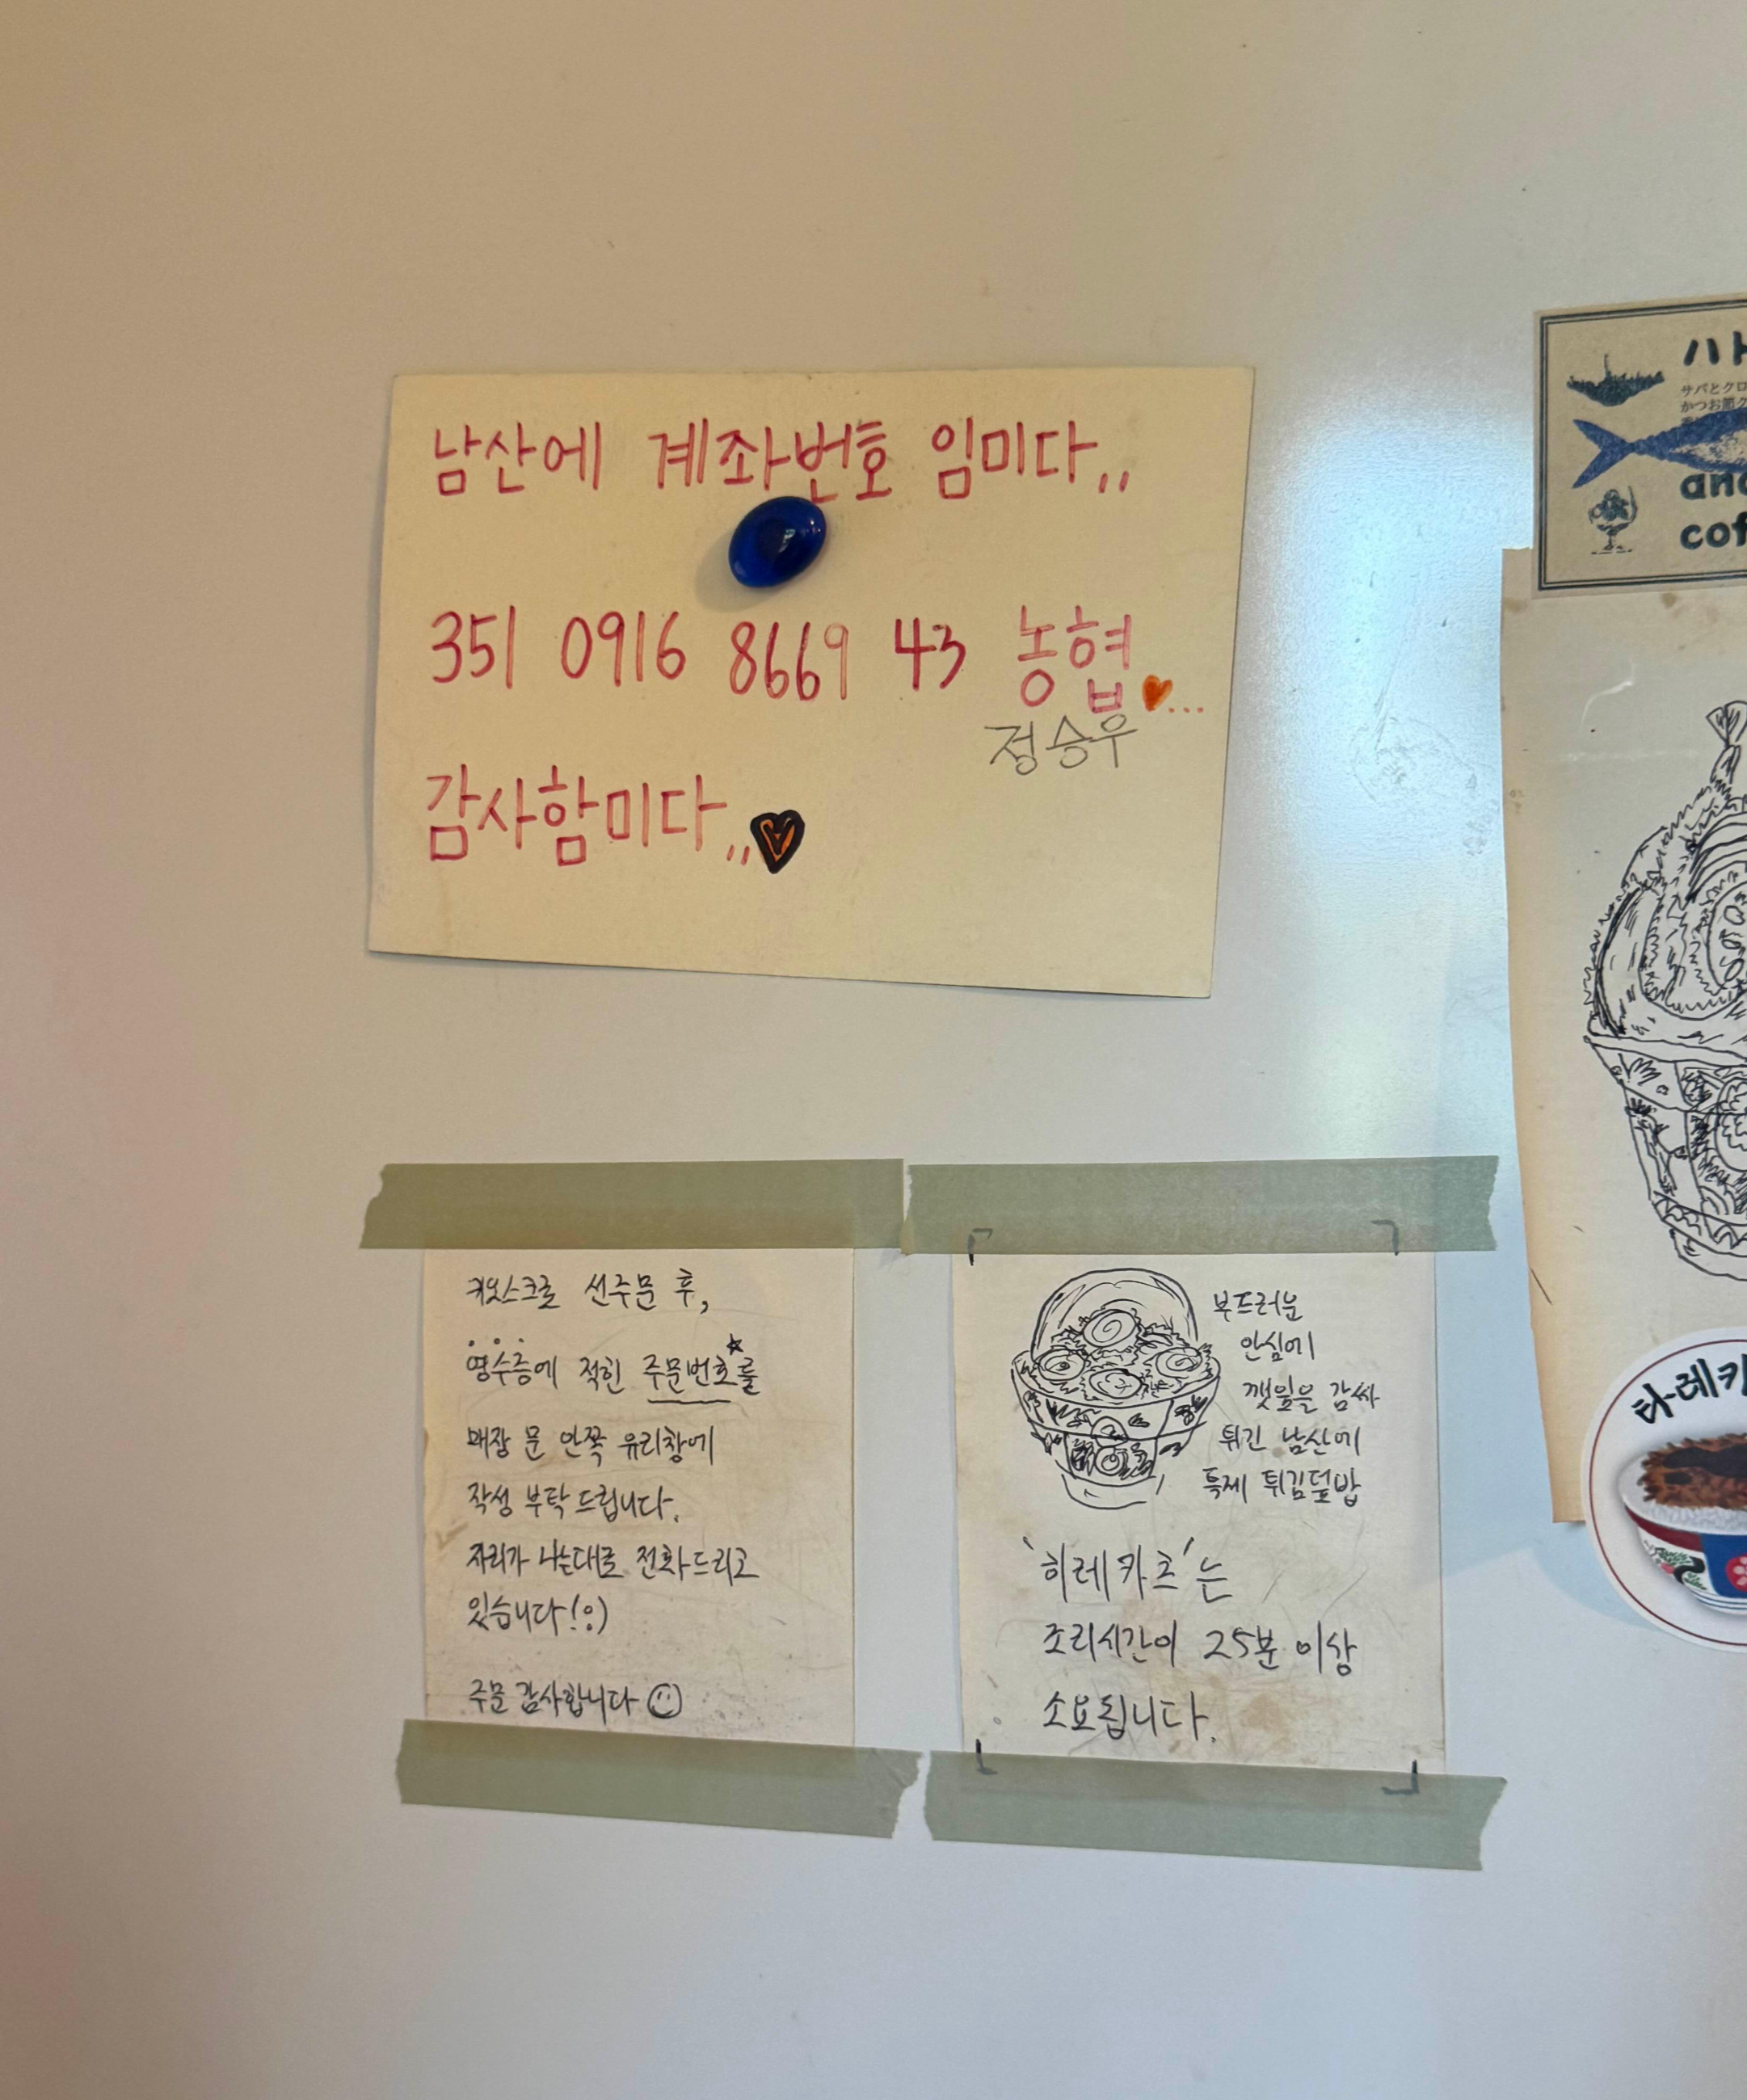 남산에 계좌번호 임미다,,
351 0916 8669 43 농협...
정승우
감사함미다,,
키오스크로 선주문 후,
영수증에 적힌 주문번호를
매장 문 안쪽 유리창에
작성 부탁드립니다.
자리가 나는대로 전화드리고
있습니다(!)
주문 감사합니다
부드러운
안심에
깻잎을 감싸
튀긴 남산에
특제 튀김덮밥
'히레카츠'는
조리시간이 25분 이상
소요됩니다.
サバとクロ
かつお節ク
and
cof
타레카